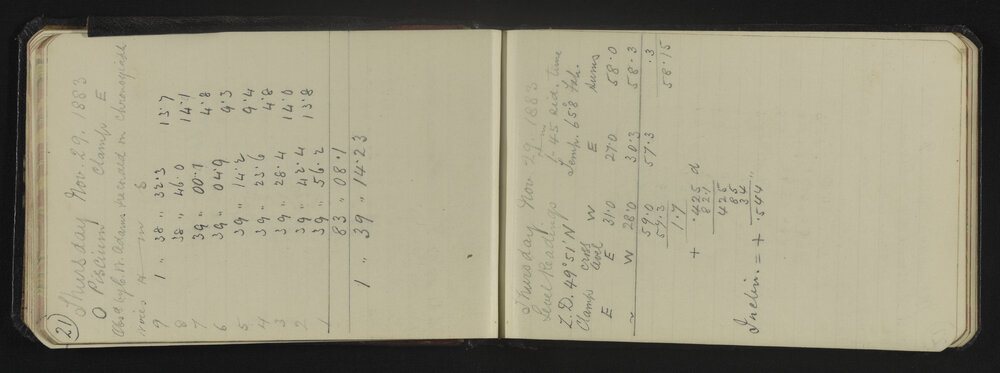 21
Thursday Nov. 29. 1883
O Piscium Clamp E
Obsd by C. W. Adams Recorded on chronograph
wires h m s
9 1 " 38 " 32.3 13.7
8 38 " 46.0 14.1
7 39 " 00.1 4.8
6 39 " 04.9 9.3
5 39 " 14.2 9.4
4 39 " 23.6 4.8
3 39 " 28.4 14.0
2 39 " 42.4 13.8
1 39 " 56.2
83 " 08.1
1 " 39 " 14.23
Thursday Nov 29. 1883
Level Readings 1.45 sid. time
Z.D. 49° 51' N Temp. 65.8 Fah.
Clamps cross level W E sums
E E 31.0 27.0 58.0
W 28.0 30.3 58.3
59.0 57.3 .3
57.3 58.15
1.7
+ .425 d
82.1
425
85
34
Inclin. = + .544"